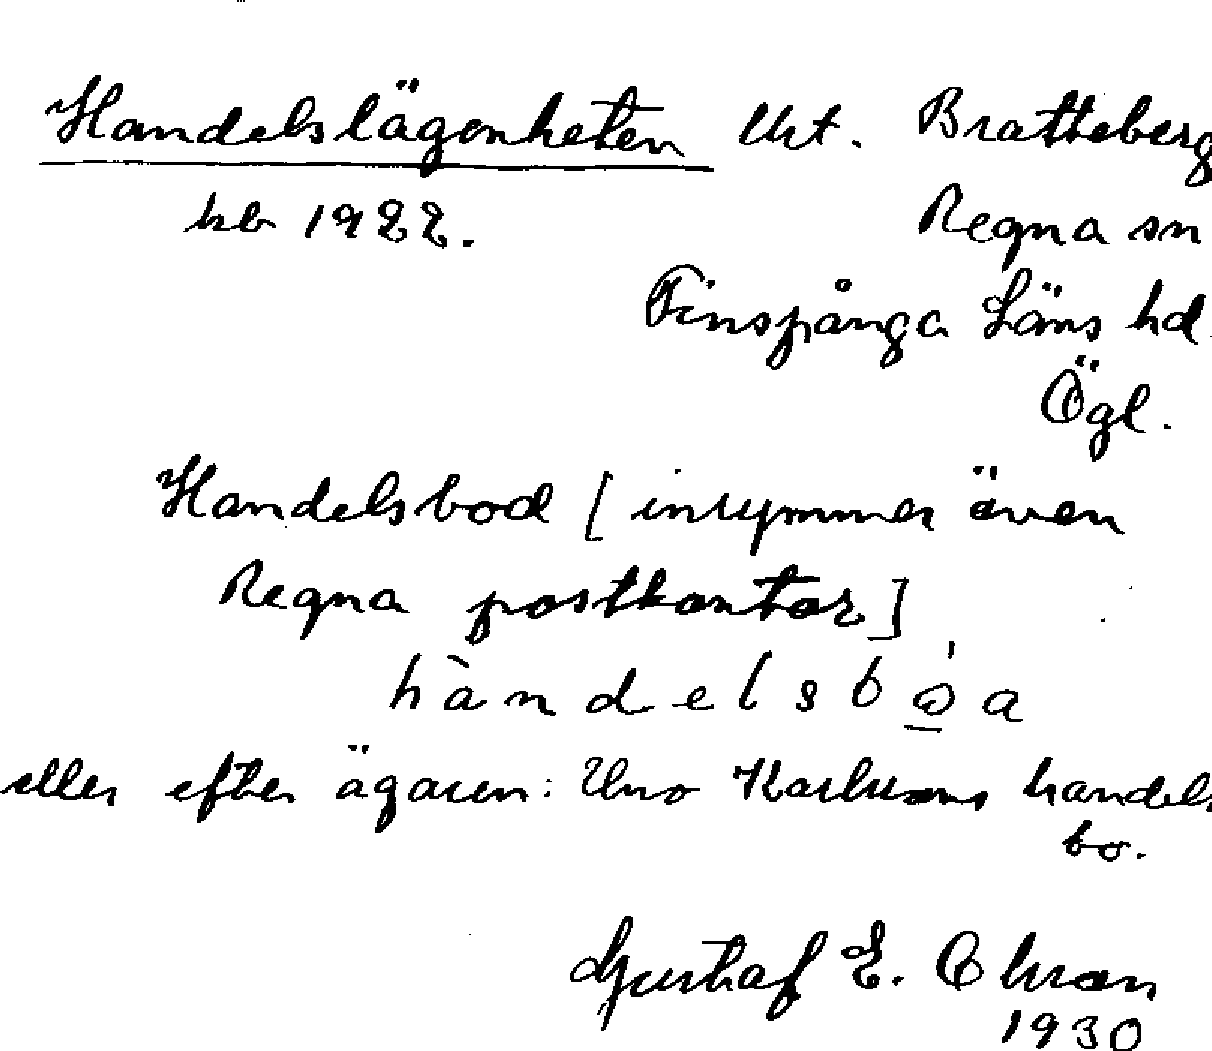 Handelslägenheten Urt. Bratteberg
kb 1922.
Regna sn
Finspånga Läns hd.
Ögl.
Handelsbod [inrymmer även
Regna postkontor]
hàndelsbo̲̍a
eller efter ägaren: Uno Karlssons handels
bo.
Gustaf E. Olsson
1930